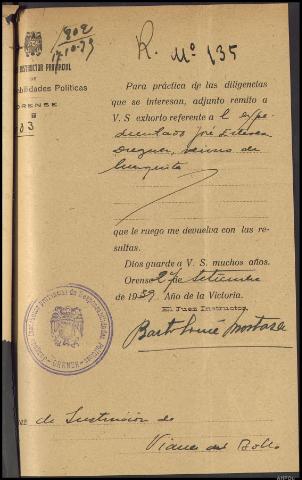 902
17-10-39
R. Nº 135
INSTRUCTOR PROVINCIAL
DE
Responsabilidades Políticas
ORENSE
Para práctica de las diligencias
que se interesan, adjunto remito a
V. S exhorto referente a l expe-
dientado José Esteban
vecino de
que le ruego me devuelva con las re-
sultas.
Dios guarde a V. S. muchos años.
Orense 2 de Setiembre
de 1939 Año de la Victoria.
El Juez Instructor,
Bartolomé Mostaza
Juzgado Instructor Provincial de Responsabilidades Políticas
ORENSE
de Instrucción de
Viana del Bollo